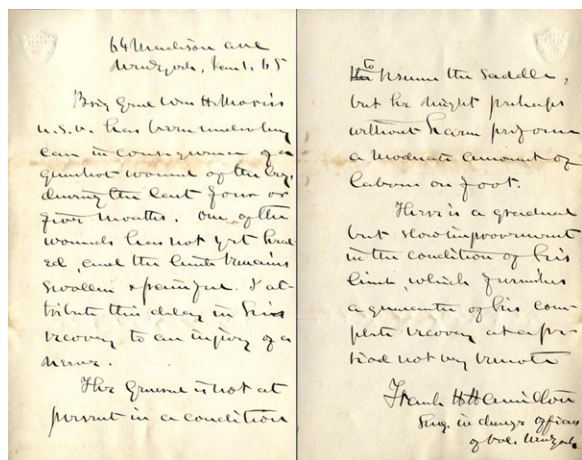 64 Madison ave
New York, Jan 1. 65
Brig Genl Wm H. Morris
U.S.V. has been under my
care in consequence of a
gunshot wound of the leg,
during the last four or
five months. One of the
wounds has not yet heal-
ed, and the limb remains
swollen & painful. I at-
tribute this delay in his
recovery to an injury of a
nerve.
The General is not at
present in a condition
to resume the saddle,
but he might perhaps
without harm perform
a moderate amount of
labour on foot.
There is a gradual
but slow improvement
in the condition of his
limb, which furnishes
a guarantee of his com-
plete recovery at a pe-
riod not very remote
Frank H. Hamilton
Surg. in charge officers
of vols New York